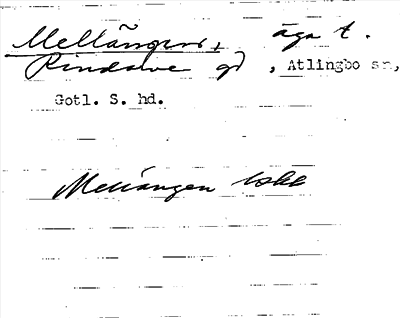 Mellängen, äga t.
Rindarve gd, Atlingbo sn,
Gotl. S. hd.
Mellängen